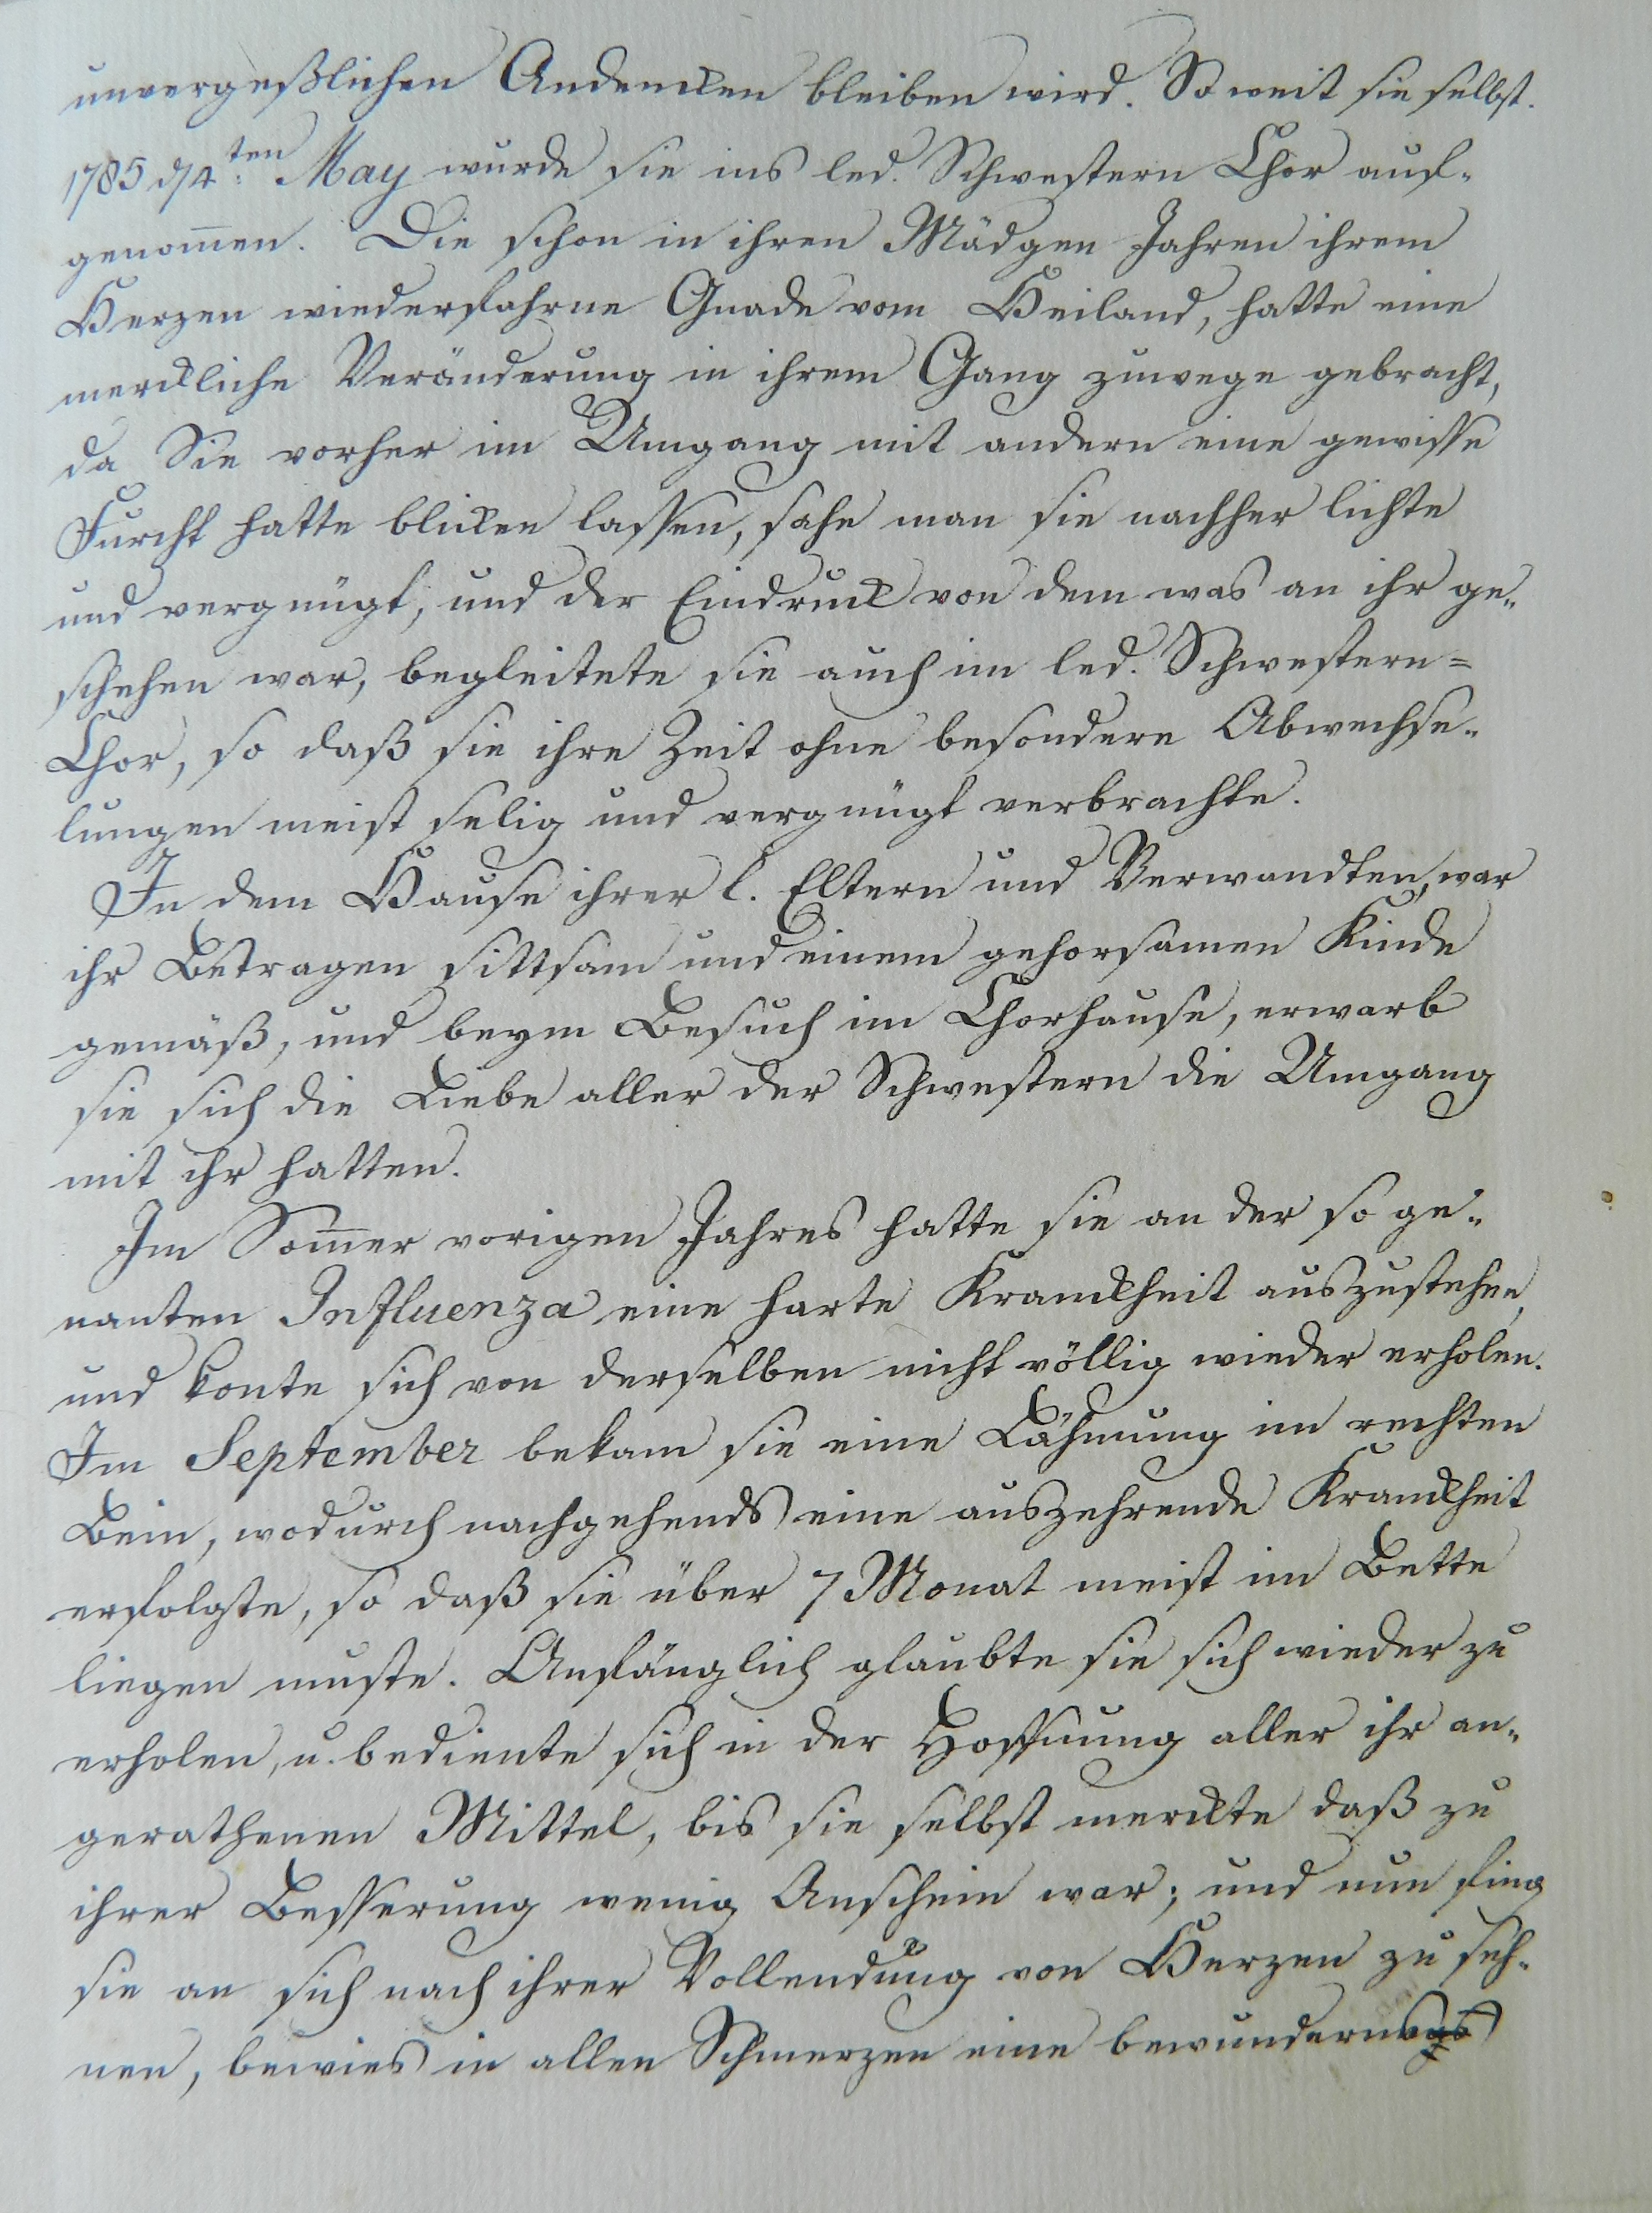 unvergeßlichen Andencken bleiben wird. So weit sie selbst.
1785 d 4.ten May wurde sie ins led. Schwestern Chor auf-
genom̅en. Die schon in ihren Mädgen Jahren ihrem
Herzen wiederfahrne Gnade vom Heiland, hatte eine
merckliche Veränderung in ihrem Gang zuwege gebracht,
da Sie vorher im Umgang mit andern eine gewisse
Furcht hatte blicken lassen, sahe man sie nachher lichte
und vergnügt, und der Eindruck von dem was an ihr ge-
schehen war, begleitete sie auch im led. Schwestern=
Chor, so daß sie ihre Zeit ohne besondere Abwechse-
lungen meist selig und vergnügt verbrachte.
In dem Hause ihrer l. Eltern und Verwandten, war
ihr Betragen sittsam und einem gehorsamen Kinde
gemäß, und beym Besuch im Chorhause, erwarb
sie sich die Liebe aller der Schwestern die Umgang
mit ihr hatten.
Im Som̅er vorigen Jahres hatte sie an der so ge-
nanten Influenza eine harte Kranckheit auszustehen,
und konte sich von derselben nicht völlig wieder erholen.
Im September bekam sie eine Lähmung im rechten
Bein, wodurch nachgehends eine auszehrende Kranckheit
erfolgte, so daß sie über 7 Monat meist im Bette
liegen muste. Anfänglich glaubte sie sich wieder zu
erholen, u. bediente sich in der Hoffnung aller ihr an-
gerathenen Mittel, bis sie selbst merckte daß zu
ihrer Besserung wenig Anschein war; und nun fing
sie an sich nach ihrer Vollendung von Herzen zu seh-
nen, bewies in allen Schmerzen eine bewunderns